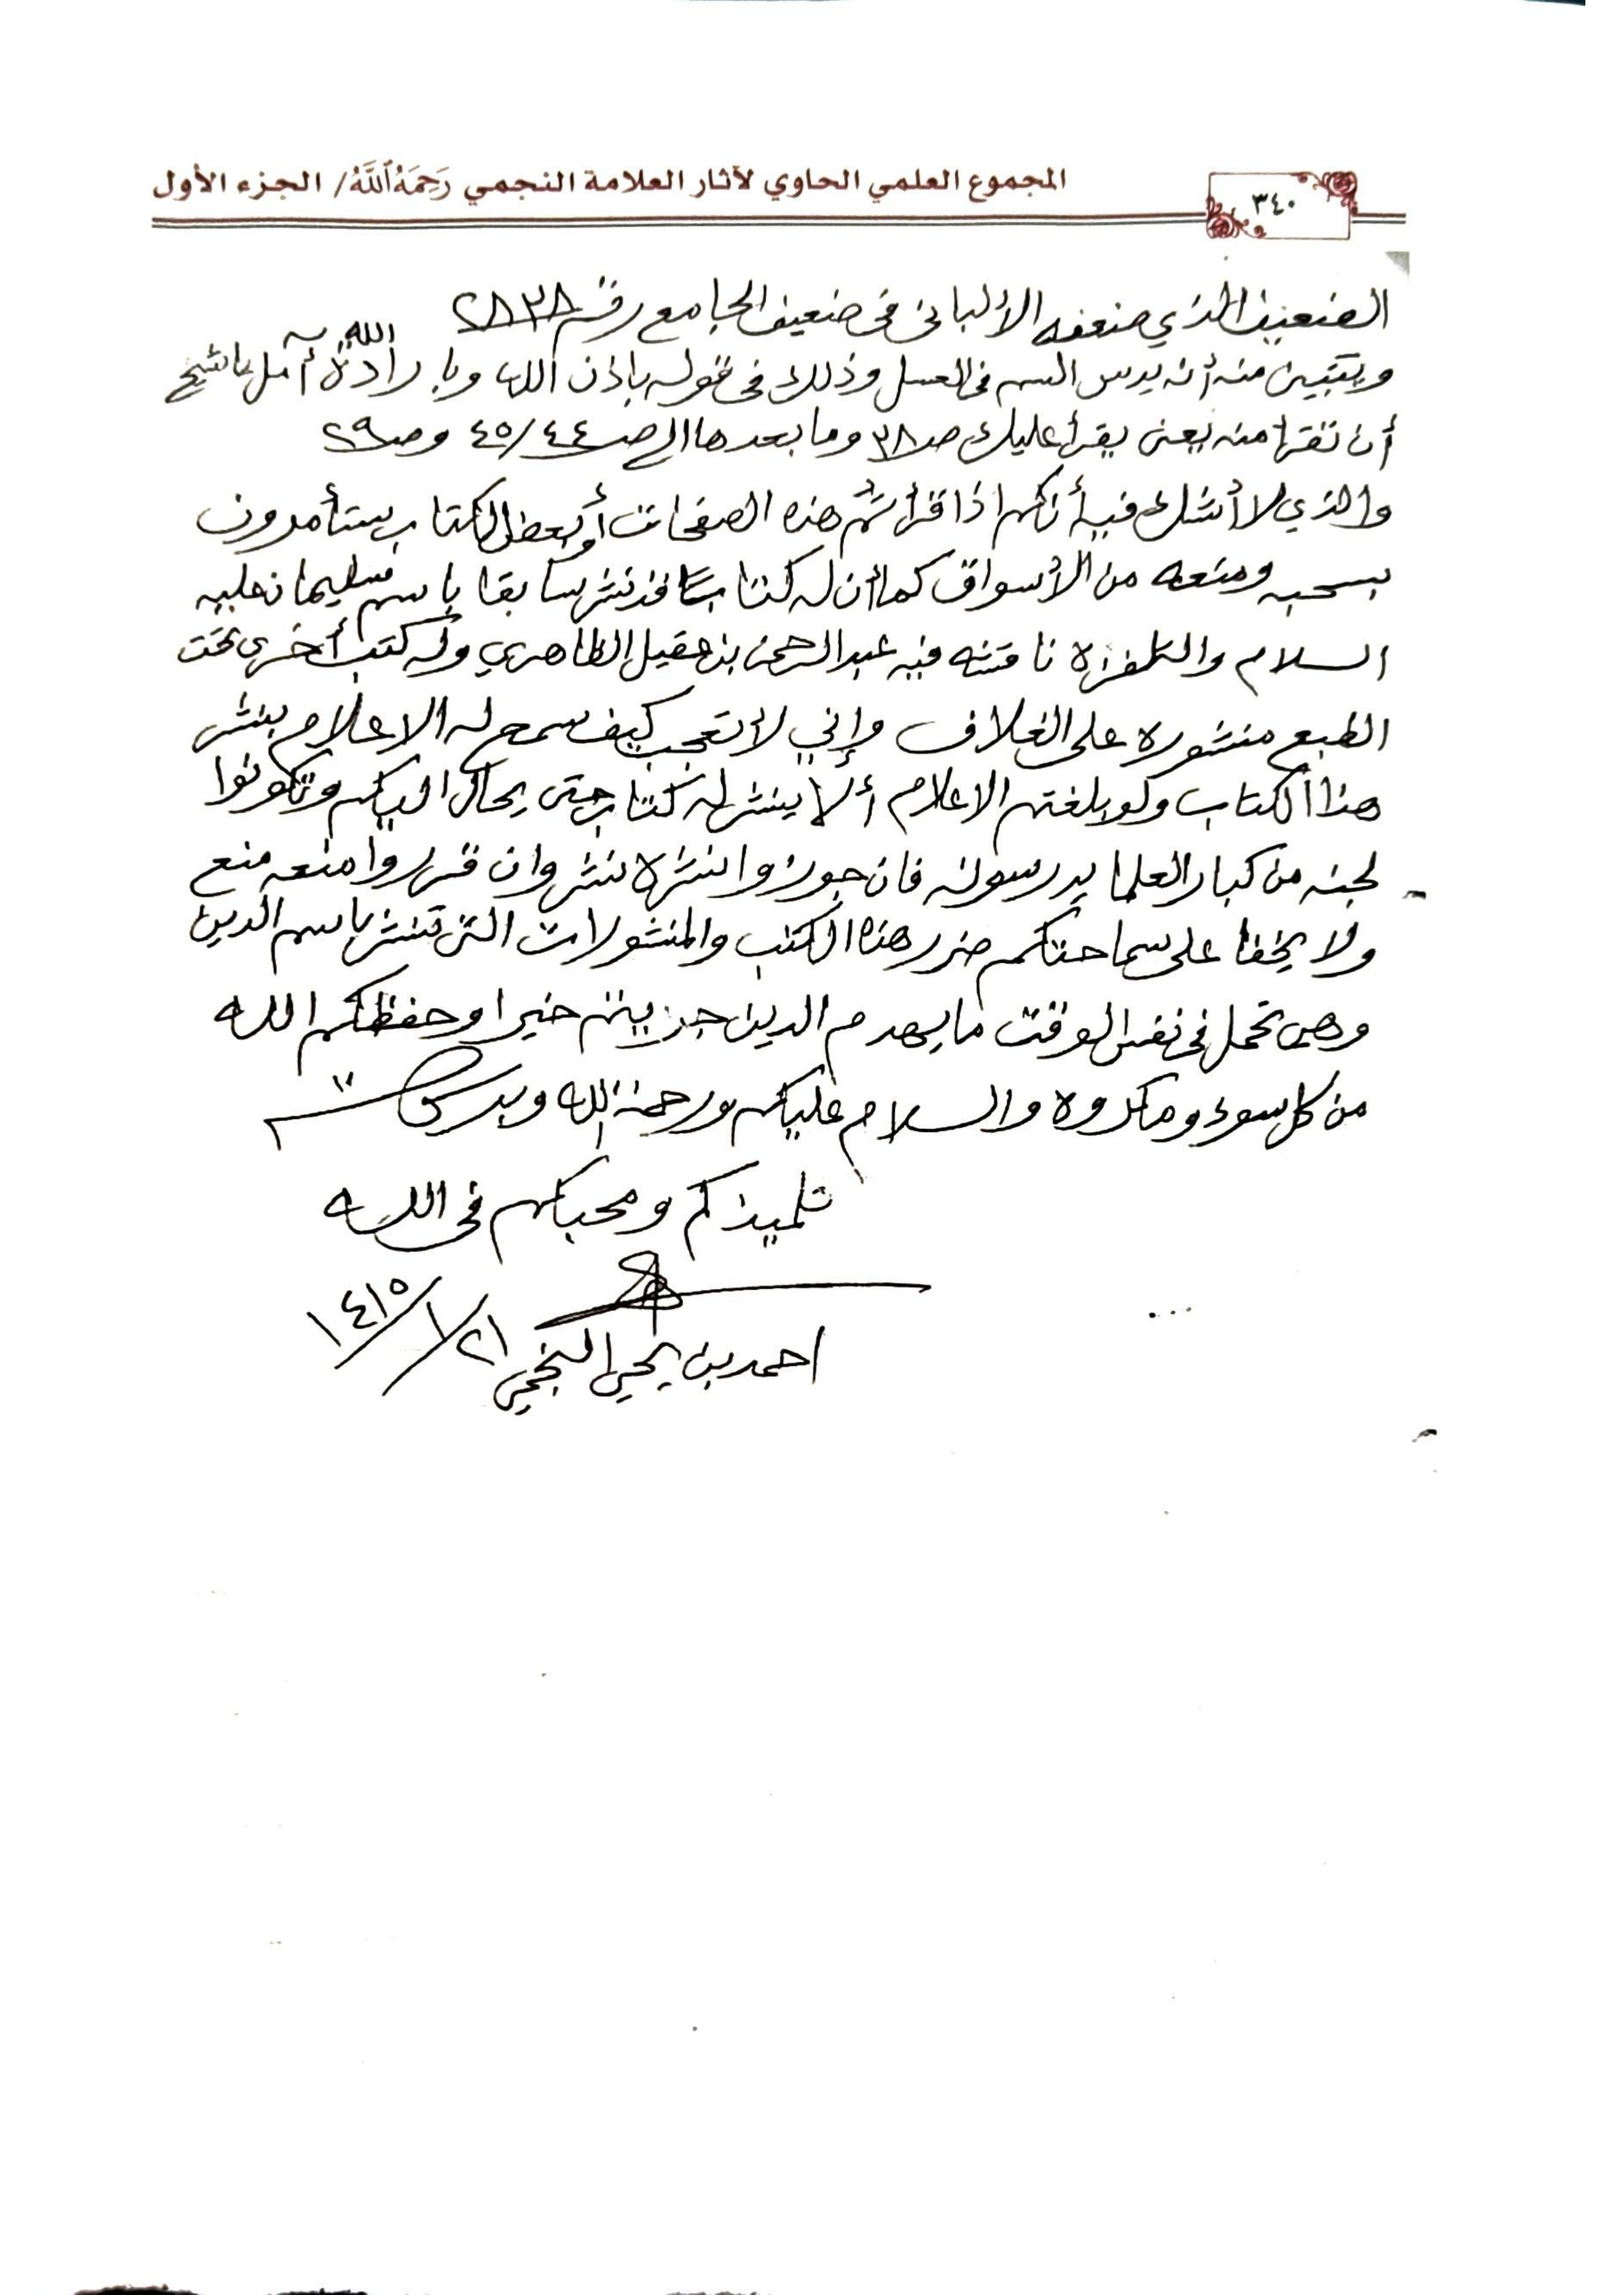 ٣٤٠
المجموع العلمي الحاوي لآثار العلامة النجمي رَحِمَهُ ٱللَّهُ/ الجزء الأول
الضعيف الذي ضعفه الألباني في ضعيف الجامع رقم ٢٨٣٨
ويتبين منه أنه يدس السم في العسل وذلك في قوله باذن الله وبإرادة الله آمل يا شيخ
أن تقرأ منه يعني يقرأ عليك صـ ٣٨ وما بعدها الى صـ ٤٤/٤٥ وصـ ٢٩
والذي لا أشك فيه أنكم اذا قرأتم هذه الصفحات أو بعض الكتاب ستأمرون
بسحبه ومنعه من الأسواق كما أن له كتابا قد نشر سابقا باسم سليمان عليه
السلام والتلفزة ناقشه فيه عبد الرحمن بن عقيل الظاهري وله كتب أخرى تحت
الطبع منشوره على الغلاف وإني لأتعجب كيف سمح له الاعلام بنشر
هذا الكتاب ولو بلغتم الاعلام ألا ينشر له كتاب حتى يحال اليكم وتكونوا
لجنه من كبار العلما يدرسونه فان جوزوا نشره نشر وان قرروا منعه منع
ولا يخفا على سماحتكم ضرر هذه الكتب والمنشورات التي تنشر باسم الدين
وهي تحمل في نفس الوقت ما يهدم الدين جزيتم خيرا وحفظكم الله
من كل سوء ومكروه والسلام عليكم ورحمة الله وبركاته
تلميذكم ومحبكم في الله
احمد بن يحيى النجمي ٢١/١/١٤١٥